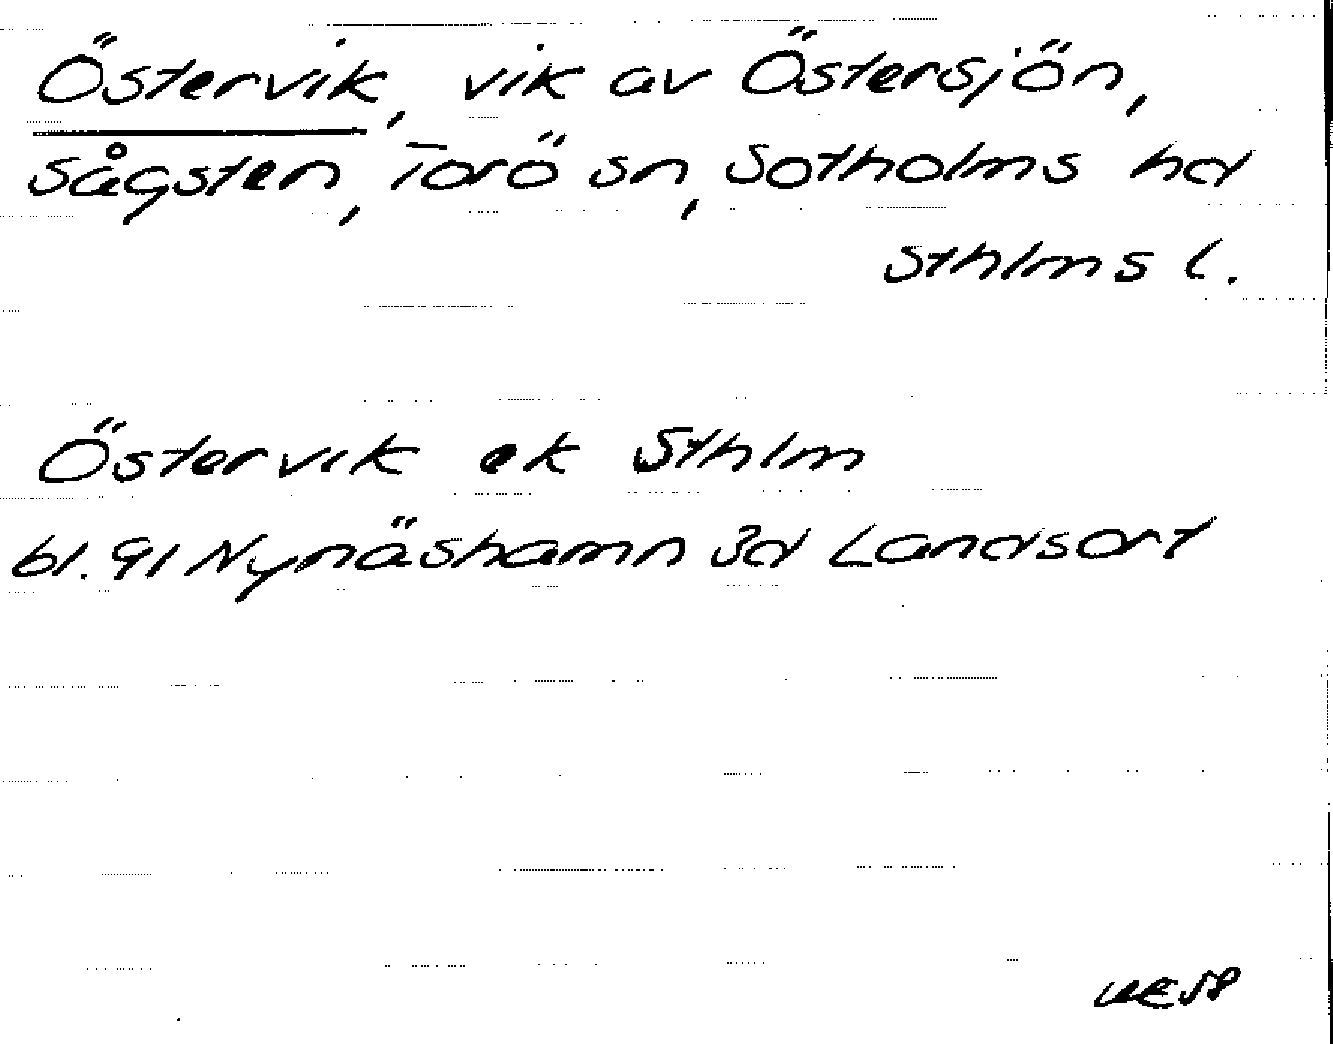 Östervik, vik av Östersjön,
Sågsten, Torö sn, Sotholms hd
Sthlms l.
Östervik ek Sthlm
bl. 91 Nynäshamn 3d Landsort